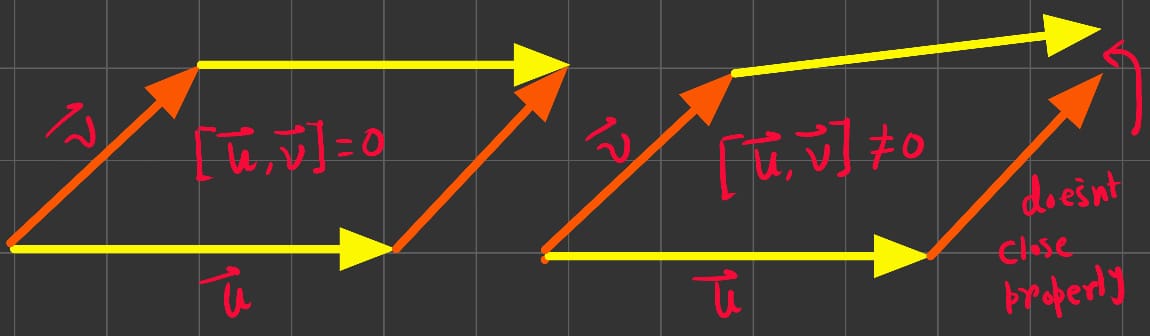 v⃗
[u⃗, v⃗] = 0
u⃗
v⃗
[u⃗, v⃗] ≠ 0
u⃗
doesnt
close
properly